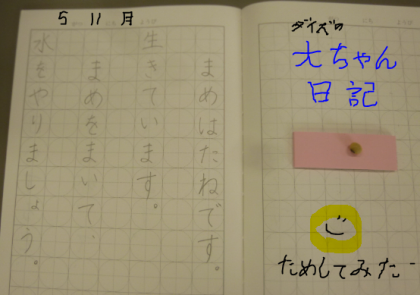 5 11 月
まめはたねです。
生きています。
まめをまいて
水をやりましょう。
ダイズの
大ちゃん
日記
ためしてみた…